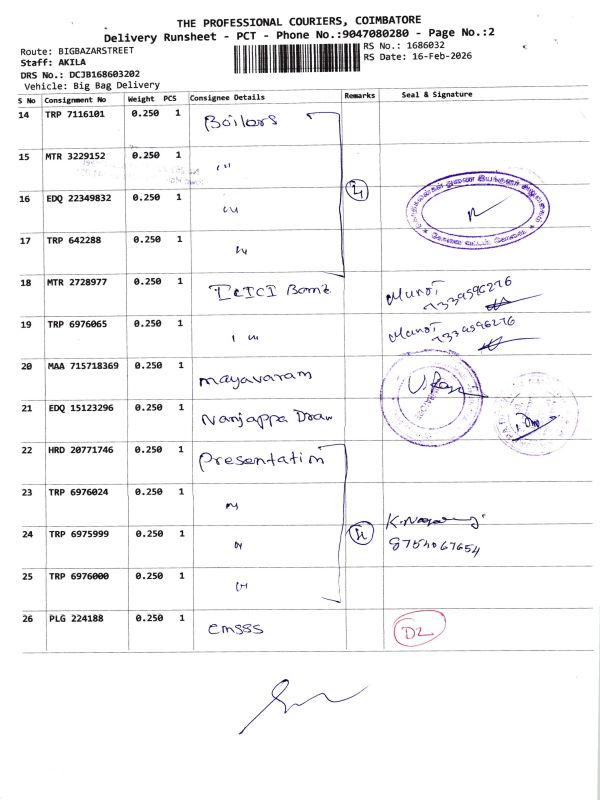 THE PROFESSIONAL COURIERS, COIMBATORE
Delivery Runsheet - PCT - Phone No.:9047080280 - Page No.:2
Route: BIGBAZARSTREET
RS No.: 1686032
Staff: AKILA
RS Date: 16-Feb-2026
DRS No.: DCJB168603202
Vehicle: Big Bag Delivery
S No Consignment No Weight PCS Consignee Details Remarks Seal & Signature
14 TRP 7116101 0.250 1 Boilors
15 MTR 3229152 0.250 1 "
16 EDQ 22349832 0.250 1 "
17 TRP 642288 0.250 1 "
18 MTR 2728977 0.250 1 ICICI 7339596276
19 TRP 6976065 0.250 1 " 7339596276
20 MAA 715718369 0.250 1 mayavaram
21 EDQ 15123296 0.250 1 Nanjappa Draw
22 HRD 20771746 0.250 1 Presentation
23 TRP 6976024 0.250 1 "
24 TRP 6975999 0.250 1 " 8754067654
25 TRP 6976000 0.250 1 "
26 PLG 224188 0.250 1 emsss D2